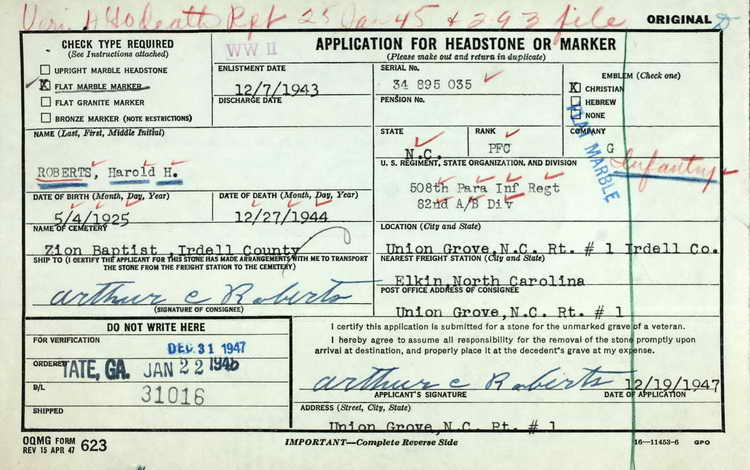 Veri. A 40 death Rpt 25 Jan 45 & 293 file
ORIGINAL
CHECK TYPE REQUIRED
(See Instructions attached)
UPRIGHT MARBLE HEADSTONE
X FLAT MARBLE MARKER
FLAT GRANITE MARKER
BRONZE MARKER (NOTE RESTRICTIONS)
WW II
APPLICATION FOR HEADSTONE OR MARKER
(Please make out and return in duplicate)
ENLISTMENT DATE
12/7/1943
DISCHARGE DATE
SERIAL No.
34 895 035
PENSION No.
EMBLEM (Check one)
X CHRISTIAN
HEBREW
NONE
FLAT MARBLE
STATE
N.C.
RANK
PFC
COMPANY
G
Infantry
NAME (Last, First, Middle Initial)
ROBERTS, Harold H.
U. S. REGIMENT, STATE ORGANIZATION, AND DIVISION
508th Para Inf Regt
82nd A/B Div
DATE OF BIRTH (Month, Day, Year)
5/4/1925
DATE OF DEATH (Month, Day, Year)
12/27/1944
NAME OF CEMETERY
Zion Baptist ,Irdell County
LOCATION (City and State)
Union Grove,N.C. Rt. # 1 Irdell Co.
SHIP TO (I CERTIFY THE APPLICANT FOR THIS STONE HAS MADE ARRANGEMENTS WITH ME TO TRANSPORT
THE STONE FROM THE FREIGHT STATION TO THE CEMETERY)
arthur c Roberts
(SIGNATURE OF CONSIGNEE)
NEAREST FREIGHT STATION (City and State)
Elkin,North Carolina
POST OFFICE ADDRESS OF CONSIGNEE
Union Grove,N.C. Rt. # 1
DO NOT WRITE HERE
FOR VERIFICATION
DEC 31 1947
ORDERED
TATE, GA. JAN 22 1948
B/L
31016
SHIPPED
I certify this application is submitted for a stone for the unmarked grave of a veteran.
I hereby agree to assume all responsibility for the removal of the stone promptly upon
arrival at destination, and properly place it at the decedent's grave at my expense.
arthur c Roberts 12/19/1947
APPLICANT'S SIGNATURE DATE OF APPLICATION
ADDRESS (Street, City, State)
Union Grove,N.C. Rt. # 1
OQMG FORM
REV 15 APR 47 623
IMPORTANT—Complete Reverse Side
16—11453-6 GPO